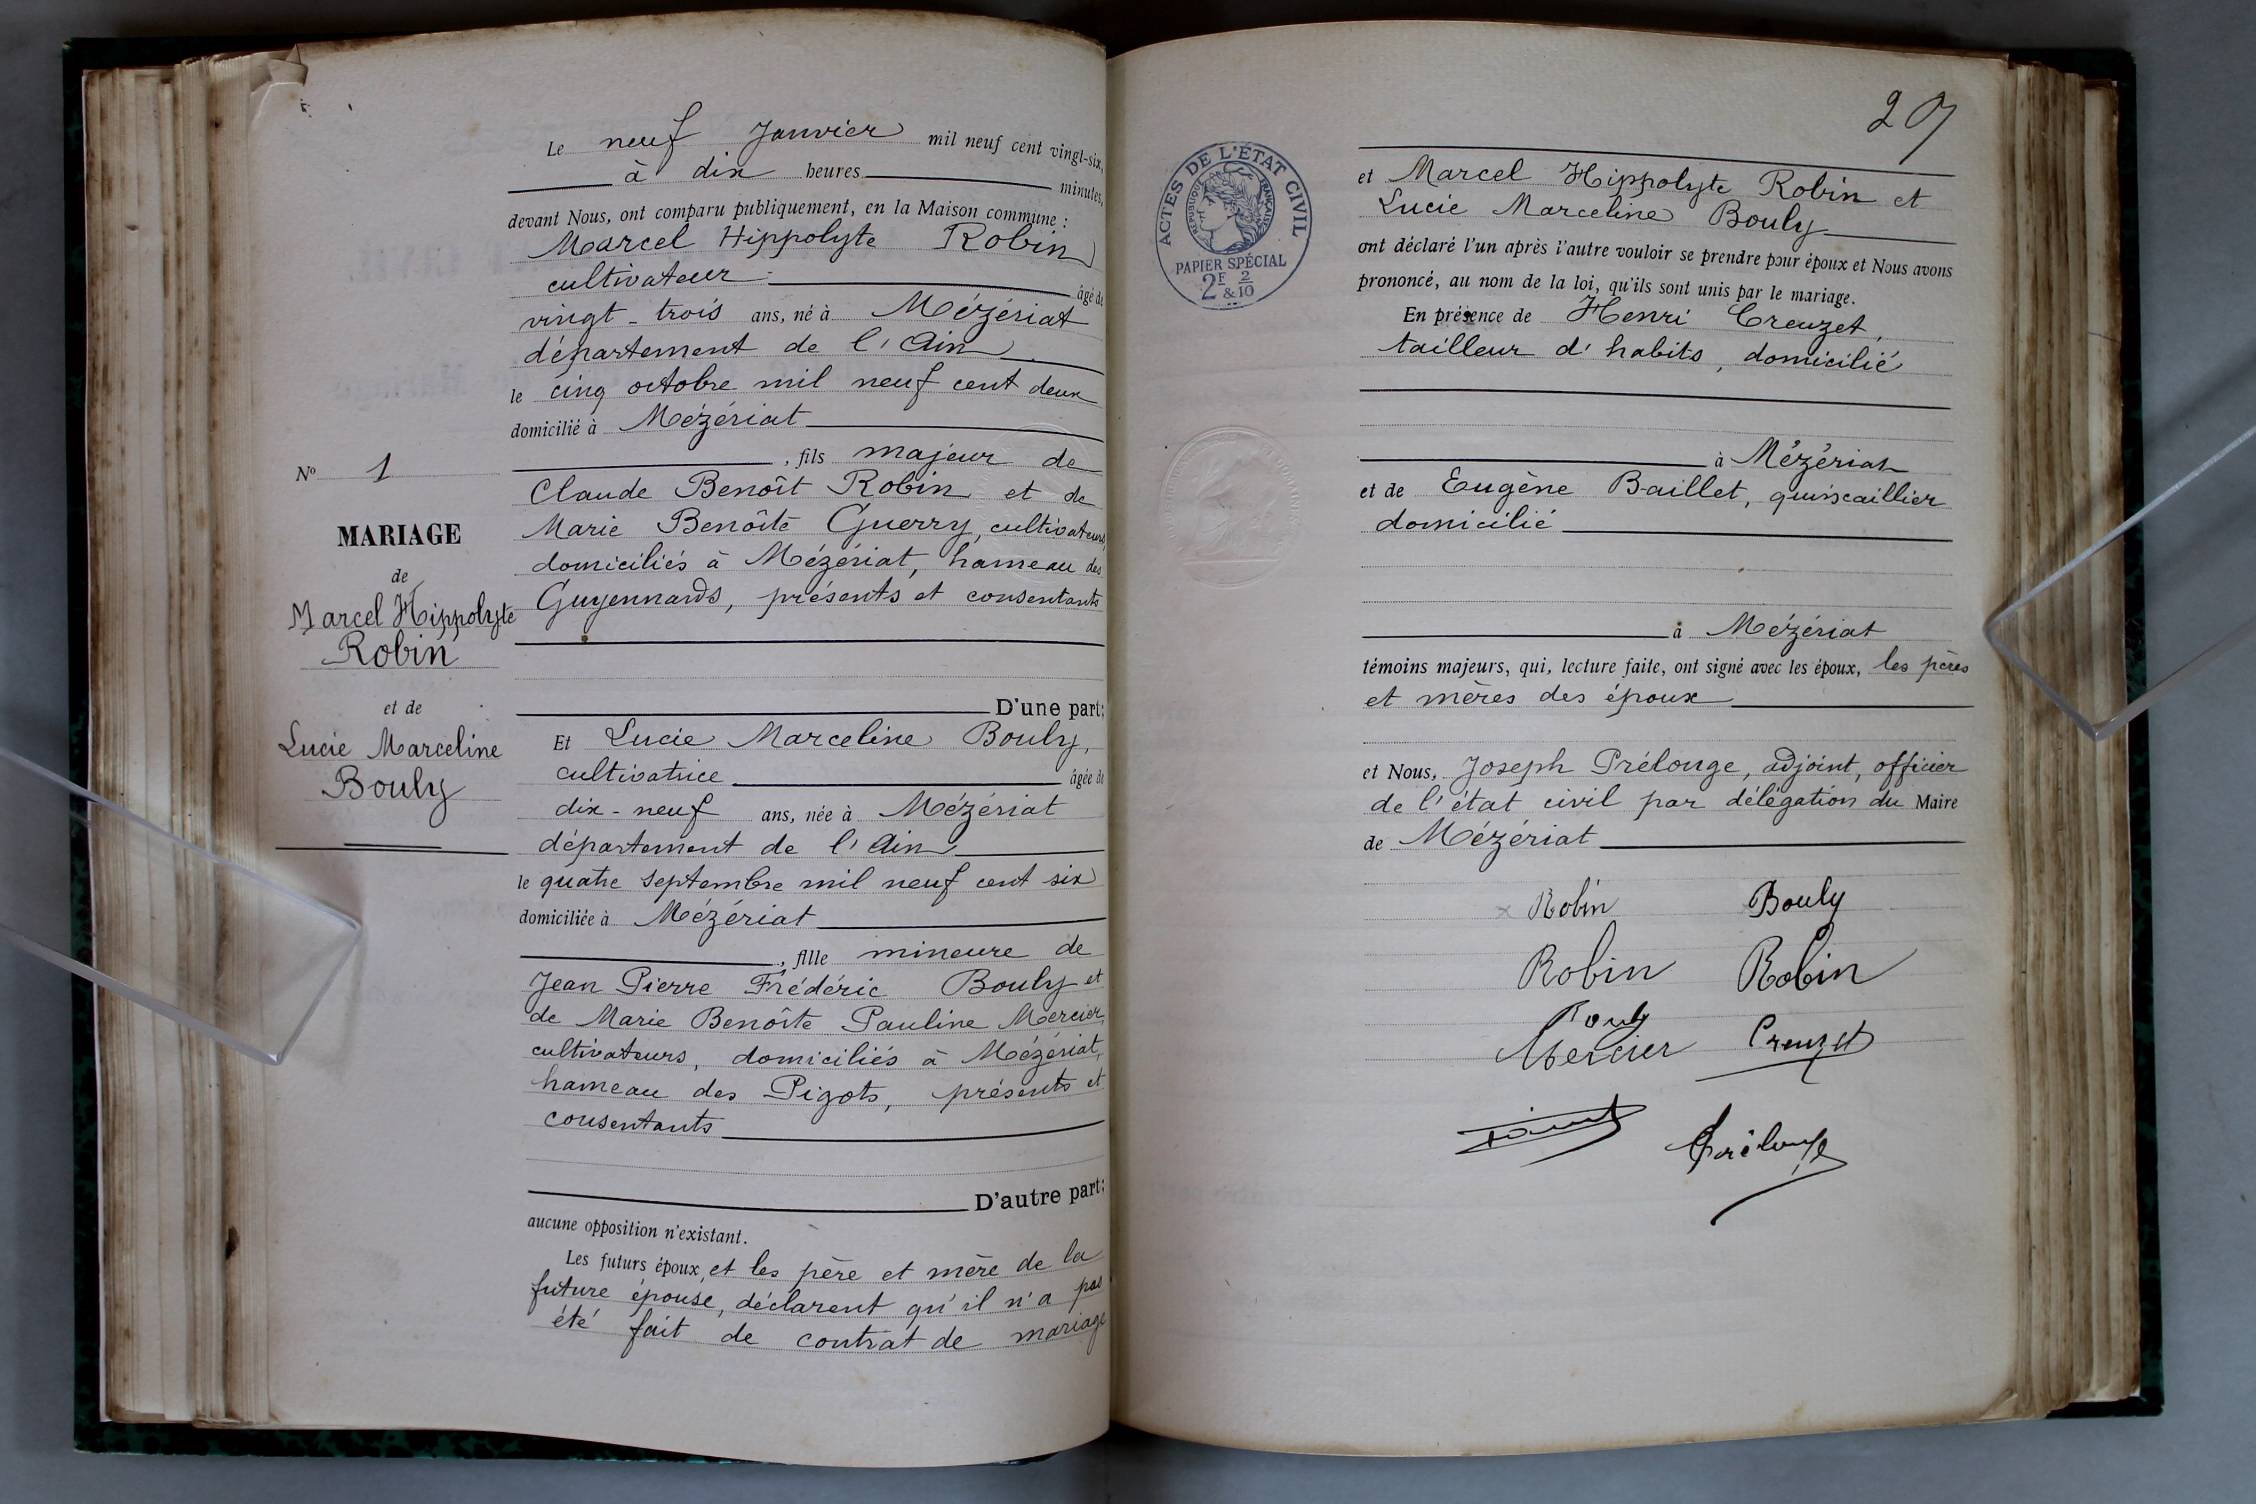 Le neuf Janvier mil neuf cent vingt-six,
à dix heures minutes,
devant Nous, ont comparu publiquement, en la Maison commune :
Marcel Hippolyte Robin
cultivateur âgé de
vingt-trois ans, né à Mézériat
département de l'Ain
le cinq octobre mil neuf cent deux
domicilié à Mézériat
, fils majeur de
Claude Benoît Robin et de
Marie Benoîte Guerry, cultivateurs,
domiciliés à Mézériat, hameau des
Guyennards, présents et consentants
D'une part;
Et Lucie Marceline Bouly,
cultivatrice âgée de
dix-neuf ans, née à Mézériat
département de l'Ain
le quatre septembre mil neuf cent six
domiciliée à Mézériat
, fille mineure de
Jean Pierre Frédéric Bouly et
de Marie Benoîte Pauline Mercier,
cultivateurs, domiciliés à Mézériat,
hameau des Pigots, présents et
consentants
D'autre part;
aucune opposition n'existant.
Les futurs époux, et les père et mère de la
future épouse, déclarent qu'il n'a pas
été fait de contrat de mariage
No 1
MARIAGE
de
Marcel Hippolyte
Robin
et de
Lucie Marceline
Bouly
ACTES DE L'ÉTAT CIVIL
RÉPUBLIQUE FRANÇAISE
PAPIER SPÉCIAL
2F & 2/10
et Marcel Hippolyte Robin et
Lucie Marceline Bouly
ont déclaré l'un après l'autre vouloir se prendre pour époux et Nous avons
prononcé, au nom de la loi, qu'ils sont unis par le mariage.
En présence de Henri Creuzet,
tailleur d'habits, domicilié
à Mézériat
et de Eugène Baillet, quinscaillier
domicilié
à Mézériat
témoins majeurs, qui, lecture faite, ont signé avec les époux, les pères
et mères des époux
et Nous, Joseph Prélonge, adjoint, officier
de l'état civil par délégation du Maire
de Mézériat
Robin Bouly
Robin Robin
Bouly
Mercier Creuzet
Prélonge